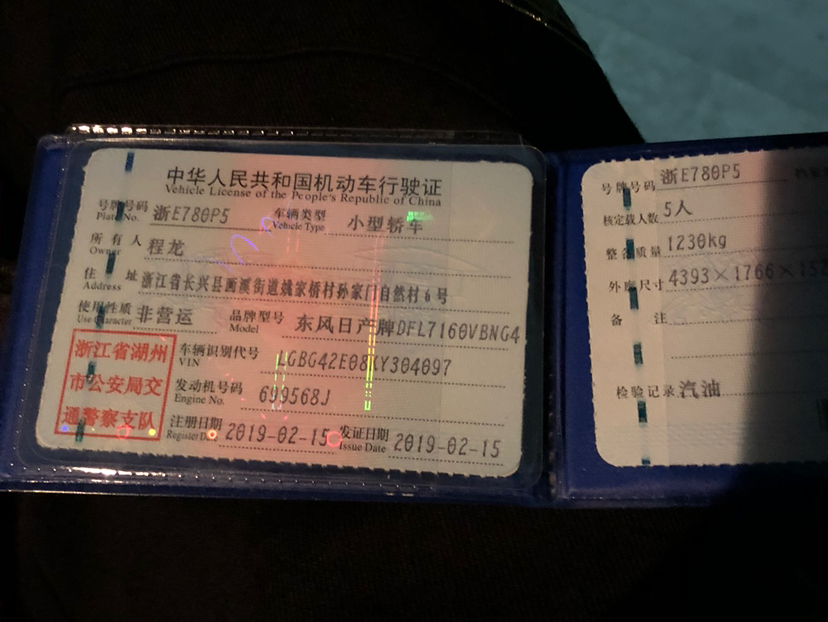 中华人民共和国机动车行驶证
Vehicle License of the People's Republic of China
号牌号码 浙E780P5 车辆类型 小型轿车
Plate No. Vehicle Type
所有人 程龙
Owner
住址 浙江省长兴县画溪街道姚家桥村孙家门自然村6号
Address
使用性质 非营运 品牌型号 东风日产牌DFL7160VBNG4
Use Character Model
浙江省湖州
市公安局交
通警察支队
车辆识别代号 LGBG42E08KY304097
VIN
发动机号码 699568J
Engine No.
注册日期 2019-02-15 发证日期 2019-02-15
Register Date Issue Date
号牌号码 浙E780P5
核定载人数 5人
整备质量 1230kg
外廓尺寸 4393×1766×15
备注
检验记录 汽油